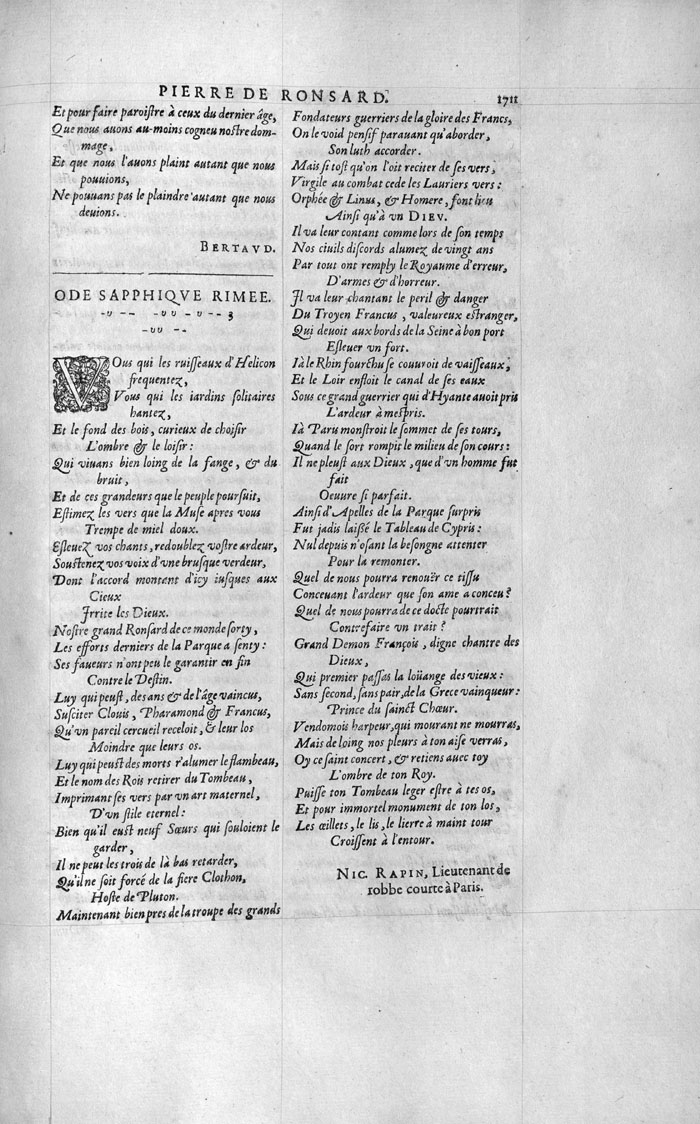 PIERRE DE RONSARD. 1711
Et pour faire paroistre à ceux du dernier âge,
Que nous auons au-moins cogneu nostre dom-
mage,
Et que nous l'auons plaint autant que nous
pouuions,
Ne pouuans pas le plaindre autant que nous
deuions.
BERTAVD.
ODE SAPPHIQVE RIMEE.
-υ -- -υυ -υ -- 3
-υυ --
VOus qui les ruisseaux d'Helicon
frequentez,
Vous qui les iardins solitaires
hantez,
Et le fond des bois, curieux de choisir
L'ombre & le loisir:
Qui viuans bien loing de la fange, & du
bruit,
Et de ces grandeurs que le peuple poursuit,
Estimez les vers que la Muse apres vous
Trempe de miel doux.
Esleuez vos chants, redoublez vostre ardeur,
Soustenez vos voix d'vne brusque verdeur,
Dont l'accord montant d'icy iusques aux
Cieux
Irrite les Dieux.
Nostre grand Ronsard de ce monde sorty,
Les efforts derniers de la Parque a senty:
Ses faueurs n'ont peu le garantir en fin
Contre le Destin.
Luy qui peust, des ans & de l'âge vaincus,
Susciter Clouis, Pharamond & Francus,
Qu'vn pareil cercueil receloit, & leur los
Moindre que leurs os.
Luy qui peust des morts r'alumer le flambeau,
Et le nom des Rois retirer du Tombeau,
Imprimant ses vers par vn art maternel,
D'vn stile eternel:
Bien qu'il eust neuf Sœurs qui souloient le
garder,
Il ne peut les trois de là bas retarder,
Qu'il ne soit forcé de la fiere Clothon,
Hoste de Pluton.
Maintenant bien pres de la troupe des grands
Fondateurs guerriers de la gloire des Francs,
On le void pensif parauant qu'aborder,
Son luth accorder.
Mais si tost qu'on l'oit reciter de ses vers,
Virgile au combat cede les Lauriers vers:
Orphée & Linus, & Homere, font lieu
Ainsi qu'à vn DIEV.
Il va leur contant comme lors de son temps
Nos ciuils discords alumez de vingt ans
Par tout ont remply le Royaume d'erreur,
D'armes & d'horreur.
Il va leur chantant le peril & danger
Du Troyen Francus, valeureux estranger,
Qui deuoit aux bords de la Seine à bon port
Esleuer vn fort.
Ià le Rhin fourchu se couuroit de vaisseaux,
Et le Loir enfloit le canal de ses eaux
Sous ce grand guerrier qui d'Hyante auoit pris
L'ardeur à mespris.
Ià Paris monstroit le sommet de ses tours,
Quand le sort rompit le milieu de son cours:
Il ne pleust aux Dieux, que d'vn homme fut
fait
Oeuure si parfait.
Ainsi d'Apelles de la Parque surpris
Fut jadis laißé le Tableau de Cypris:
Nul depuis n'osant la besongne attenter
Pour la remonter.
Quel de nous pourra renoüer ce tissu
Conceuant l'ardeur que son ame a conceu?
Quel de nous pourra de ce docte pourtrait
Contrefaire vn trait?
Grand Demon François, digne chantre des
Dieux,
Qui premier passas la loüange des vieux:
Sans second, sans pair, de la Grece vainqueur:
Prince du sainct Chœur.
Vendomois harpeur, qui mourant ne mourras,
Mais de loing nos pleurs à ton aise verras,
Oy ce saint concert, & retiens auec toy
L'ombre de ton Roy.
Puisse ton Tombeau leger estre à tes os,
Et pour immortel monument de ton los,
Les œillets, le lis, le lierre à maint tour
Croissent à l'entour.
NIC. RAPIN, Lieutenant de
robbe courte à Paris.